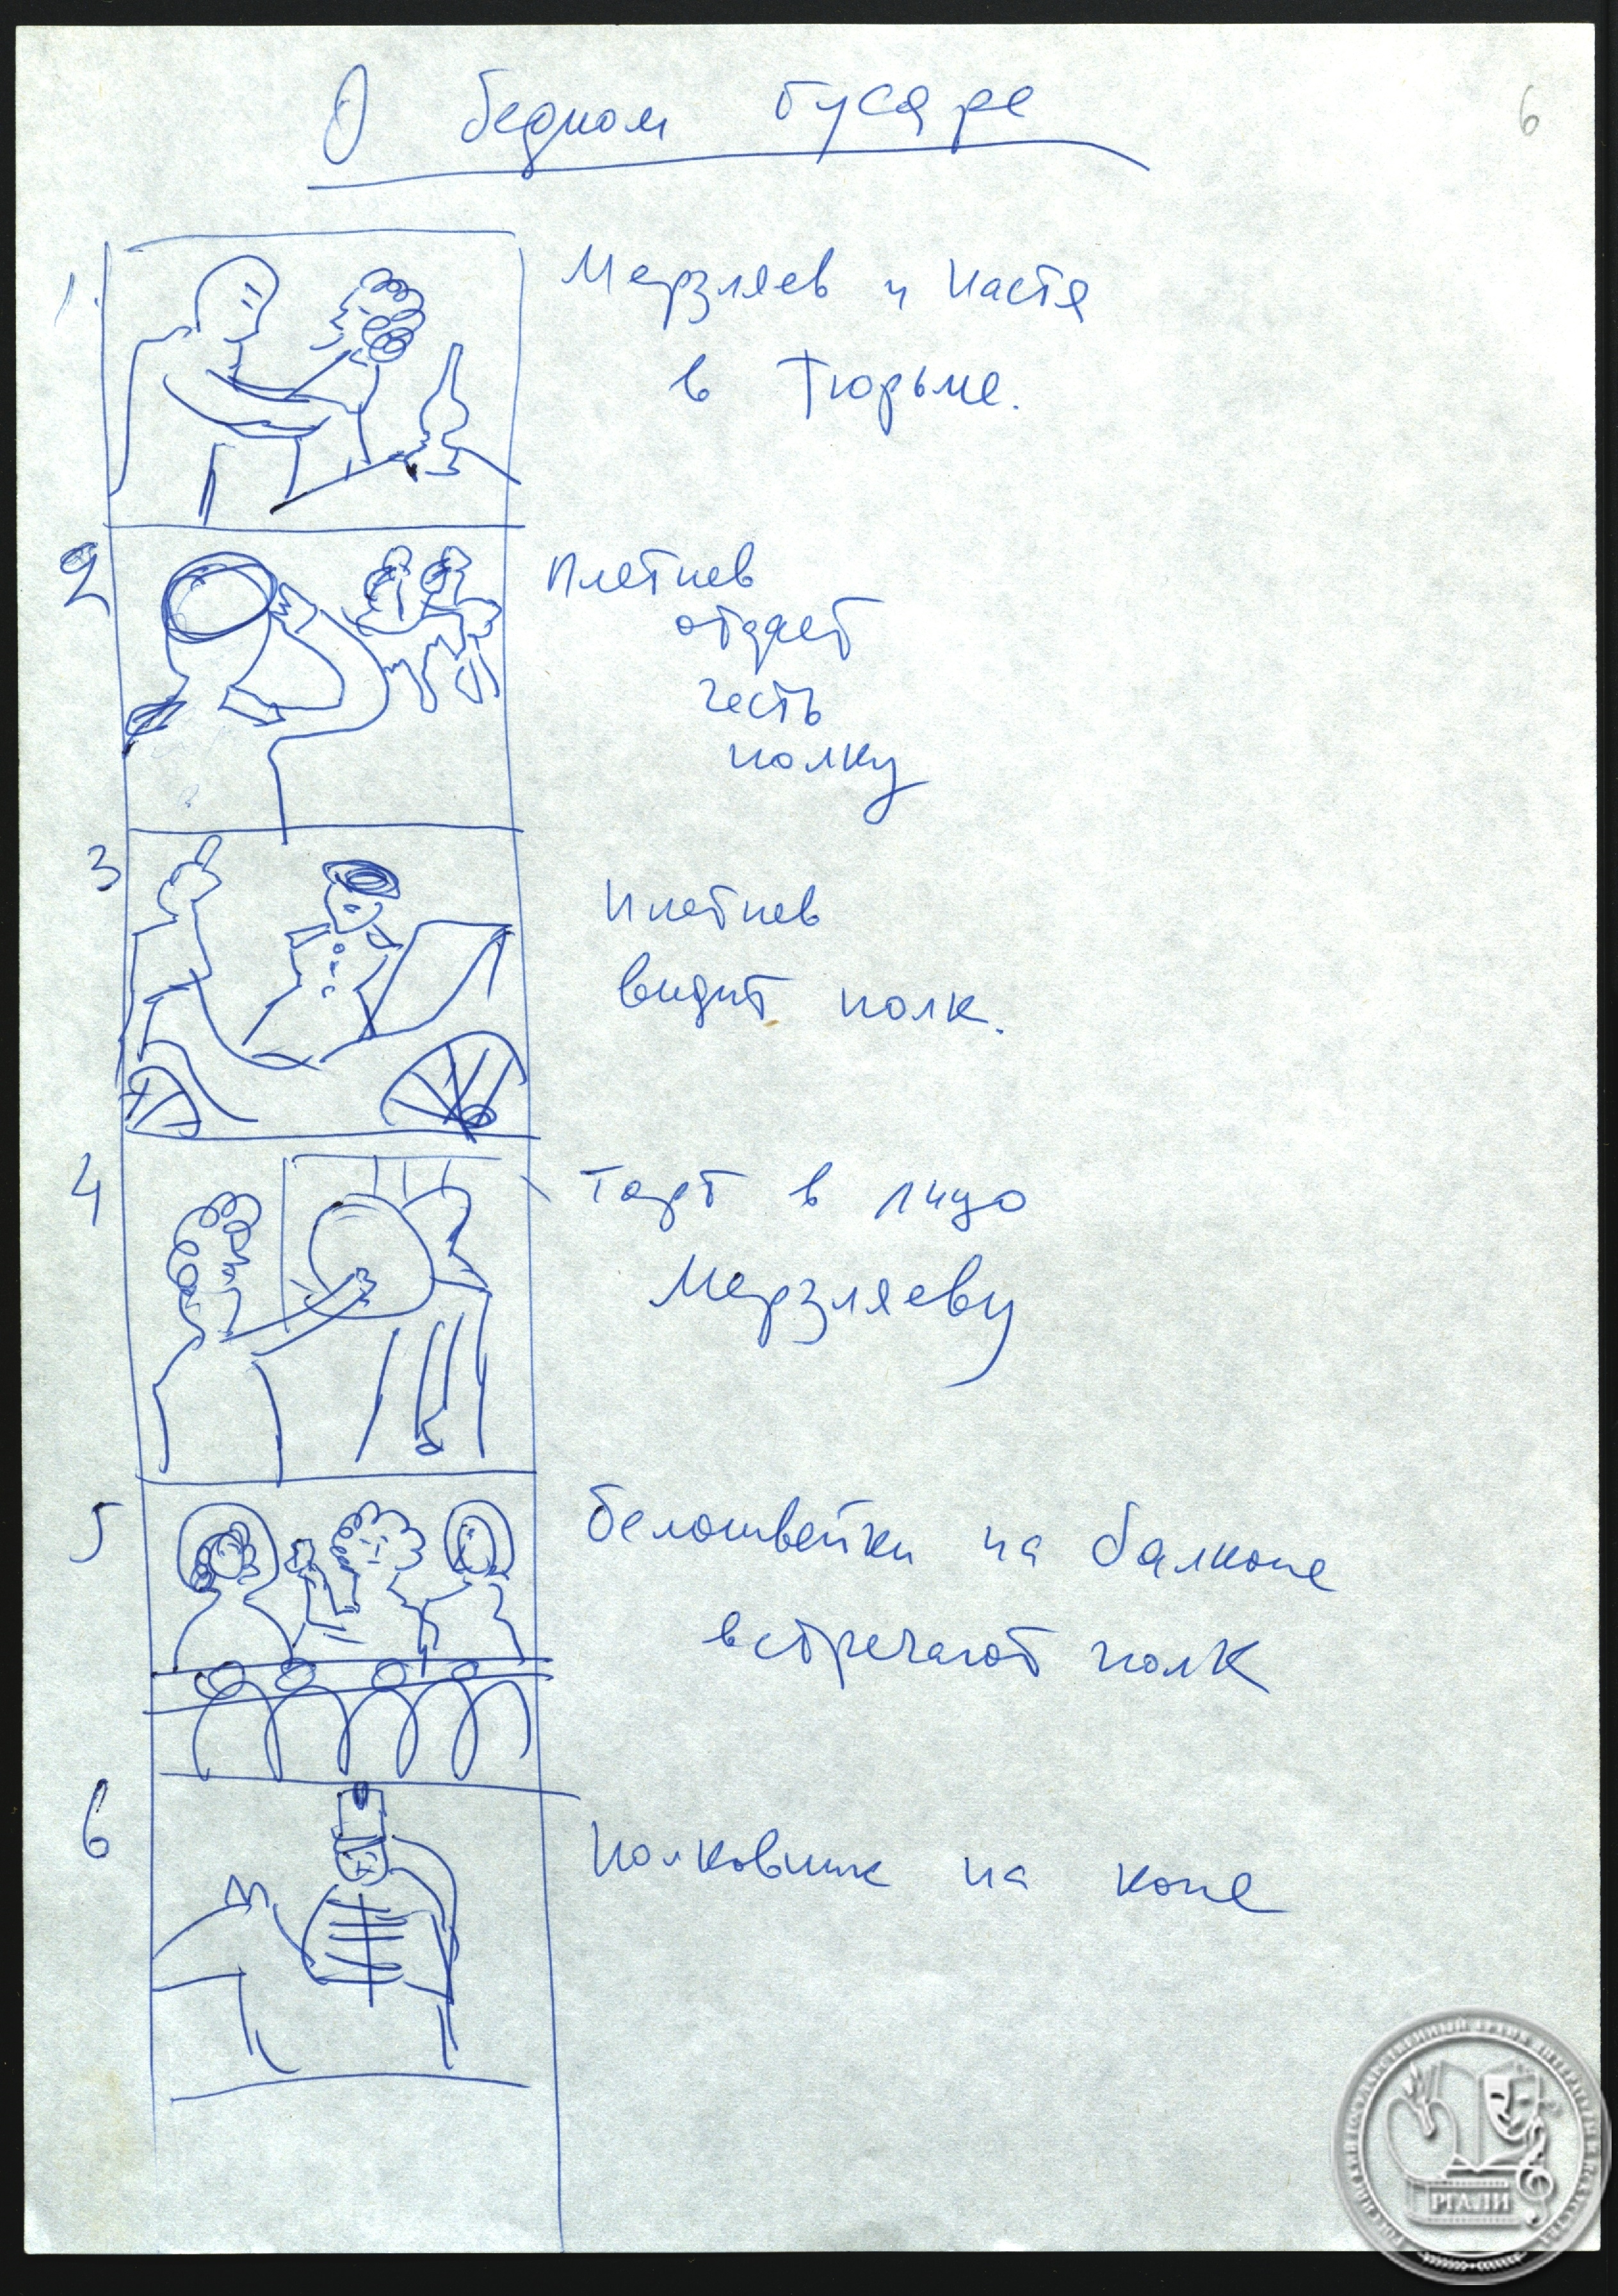 О бедном гусаре
6
1.
Мерзляев и Настя
в тюрьме.
2
Плетнев
отдает
честь
полку
3
Плетнев
видит полк.
4
Торт в лицо
Мерзляеву
5
Белошвейки на балконе
встречают полк
6
Полковник на коне
РГАЛИ